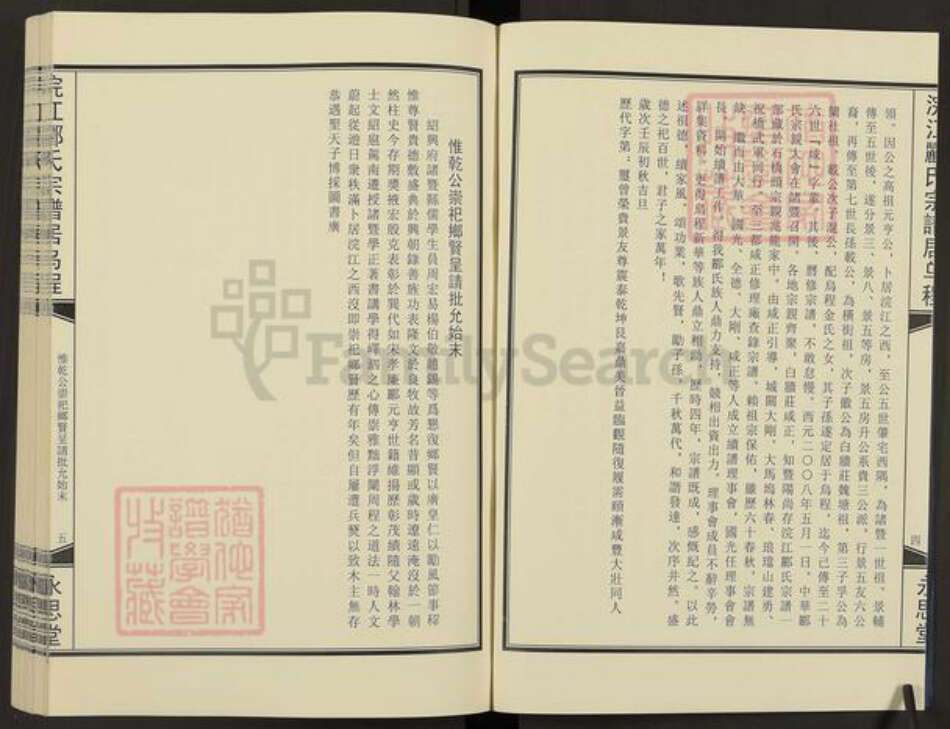 領。因公之高祖元亨公，卜居浣江之西，至公五世肇宅西隅，為諸暨一世祖，景輔
傳至五世後，遂分景三、景八、景五等房，景五房升公系貴三公派，行景五友六公
裔，再傳至第七世長孫載公，為橫街祖，次子徽公為白牆莊魏塘祖，第三子孚公為
蘭社祖，載公次子混公，配烏程金氏之女，其子孫遂定居于烏程，迄今已傳至二十
六世「球」字輩，其後，曆修宗譜，不敢怠慢。西元二〇〇八年五月一日，中華酈
氏宗親大會在諸暨召開，各地宗親齊聚，白牆莊咸正，知暨陽尚存浣江酈氏宗譜一
部藏於石橋頭宗親萬龍家中，由咸正引導，城關大剛、大馬塢林春、琅璫山建勇、
祝橋武軍同行，至三都咸正修理廠查錄宗譜，賴祖宗保佑，雖歷六十春秋，宗譜無
缺。繼而由大華、國光、全德、大剛、咸正等人成立續譜理事會，國光任理事會會
長，開始續譜工作，得我酈氏族人鼎力支持，競相出資出力，理事會成員不辭辛勞，
詳集資料，更得烏程新華等族人鼎立相助，歷時四年，宗譜既成，感慨紀之，以此
述祖德，續家風，頌功業，歌先賢，勵子孫，千秋萬代，和諧發達，次序井然，盛
德之祀百世，君子之家萬年！
歲次壬辰初秋吉旦
歷代字第：璽曾榮貴景友尊震泰乾坤艮嘉鼎美晉益臨觀隨復履需頤漸咸豊大壯同人
四
永思堂
惟乾公崇祀鄉賢呈請批允始末
紹興府諸暨縣儒學生員周宏易楊伯敬趙錫等爲懇復鄉賢以廣皇仁以勵風節事稱
惟尊賢貴德數盛典於興朝錄善族功表隆文於良牧故芳名昔顯或歲時遼遠淹沒於一朝
然柱史今存期獎掖宏股克表彰於異代如宋孝廉酈元亨世籍維揚歷彰茂績隨父翰林學
士文紹扈駕南遷授諸暨學正著書講學得嶧泗之心傳崇雅黜浮闡周程之道法一時人文
蔚起從遊日衆秩滿卜居浣江之西沒即崇祀鄉賢歷有年矣但自屢遭兵燹以致木主無存
恭遇聖天子博採圖書廣
浣江酈氏宗譜居烏程
惟乾公崇祀鄉賢呈請批允始末
五
永思堂
FamilySearch
猶他家
譜學會
收藏